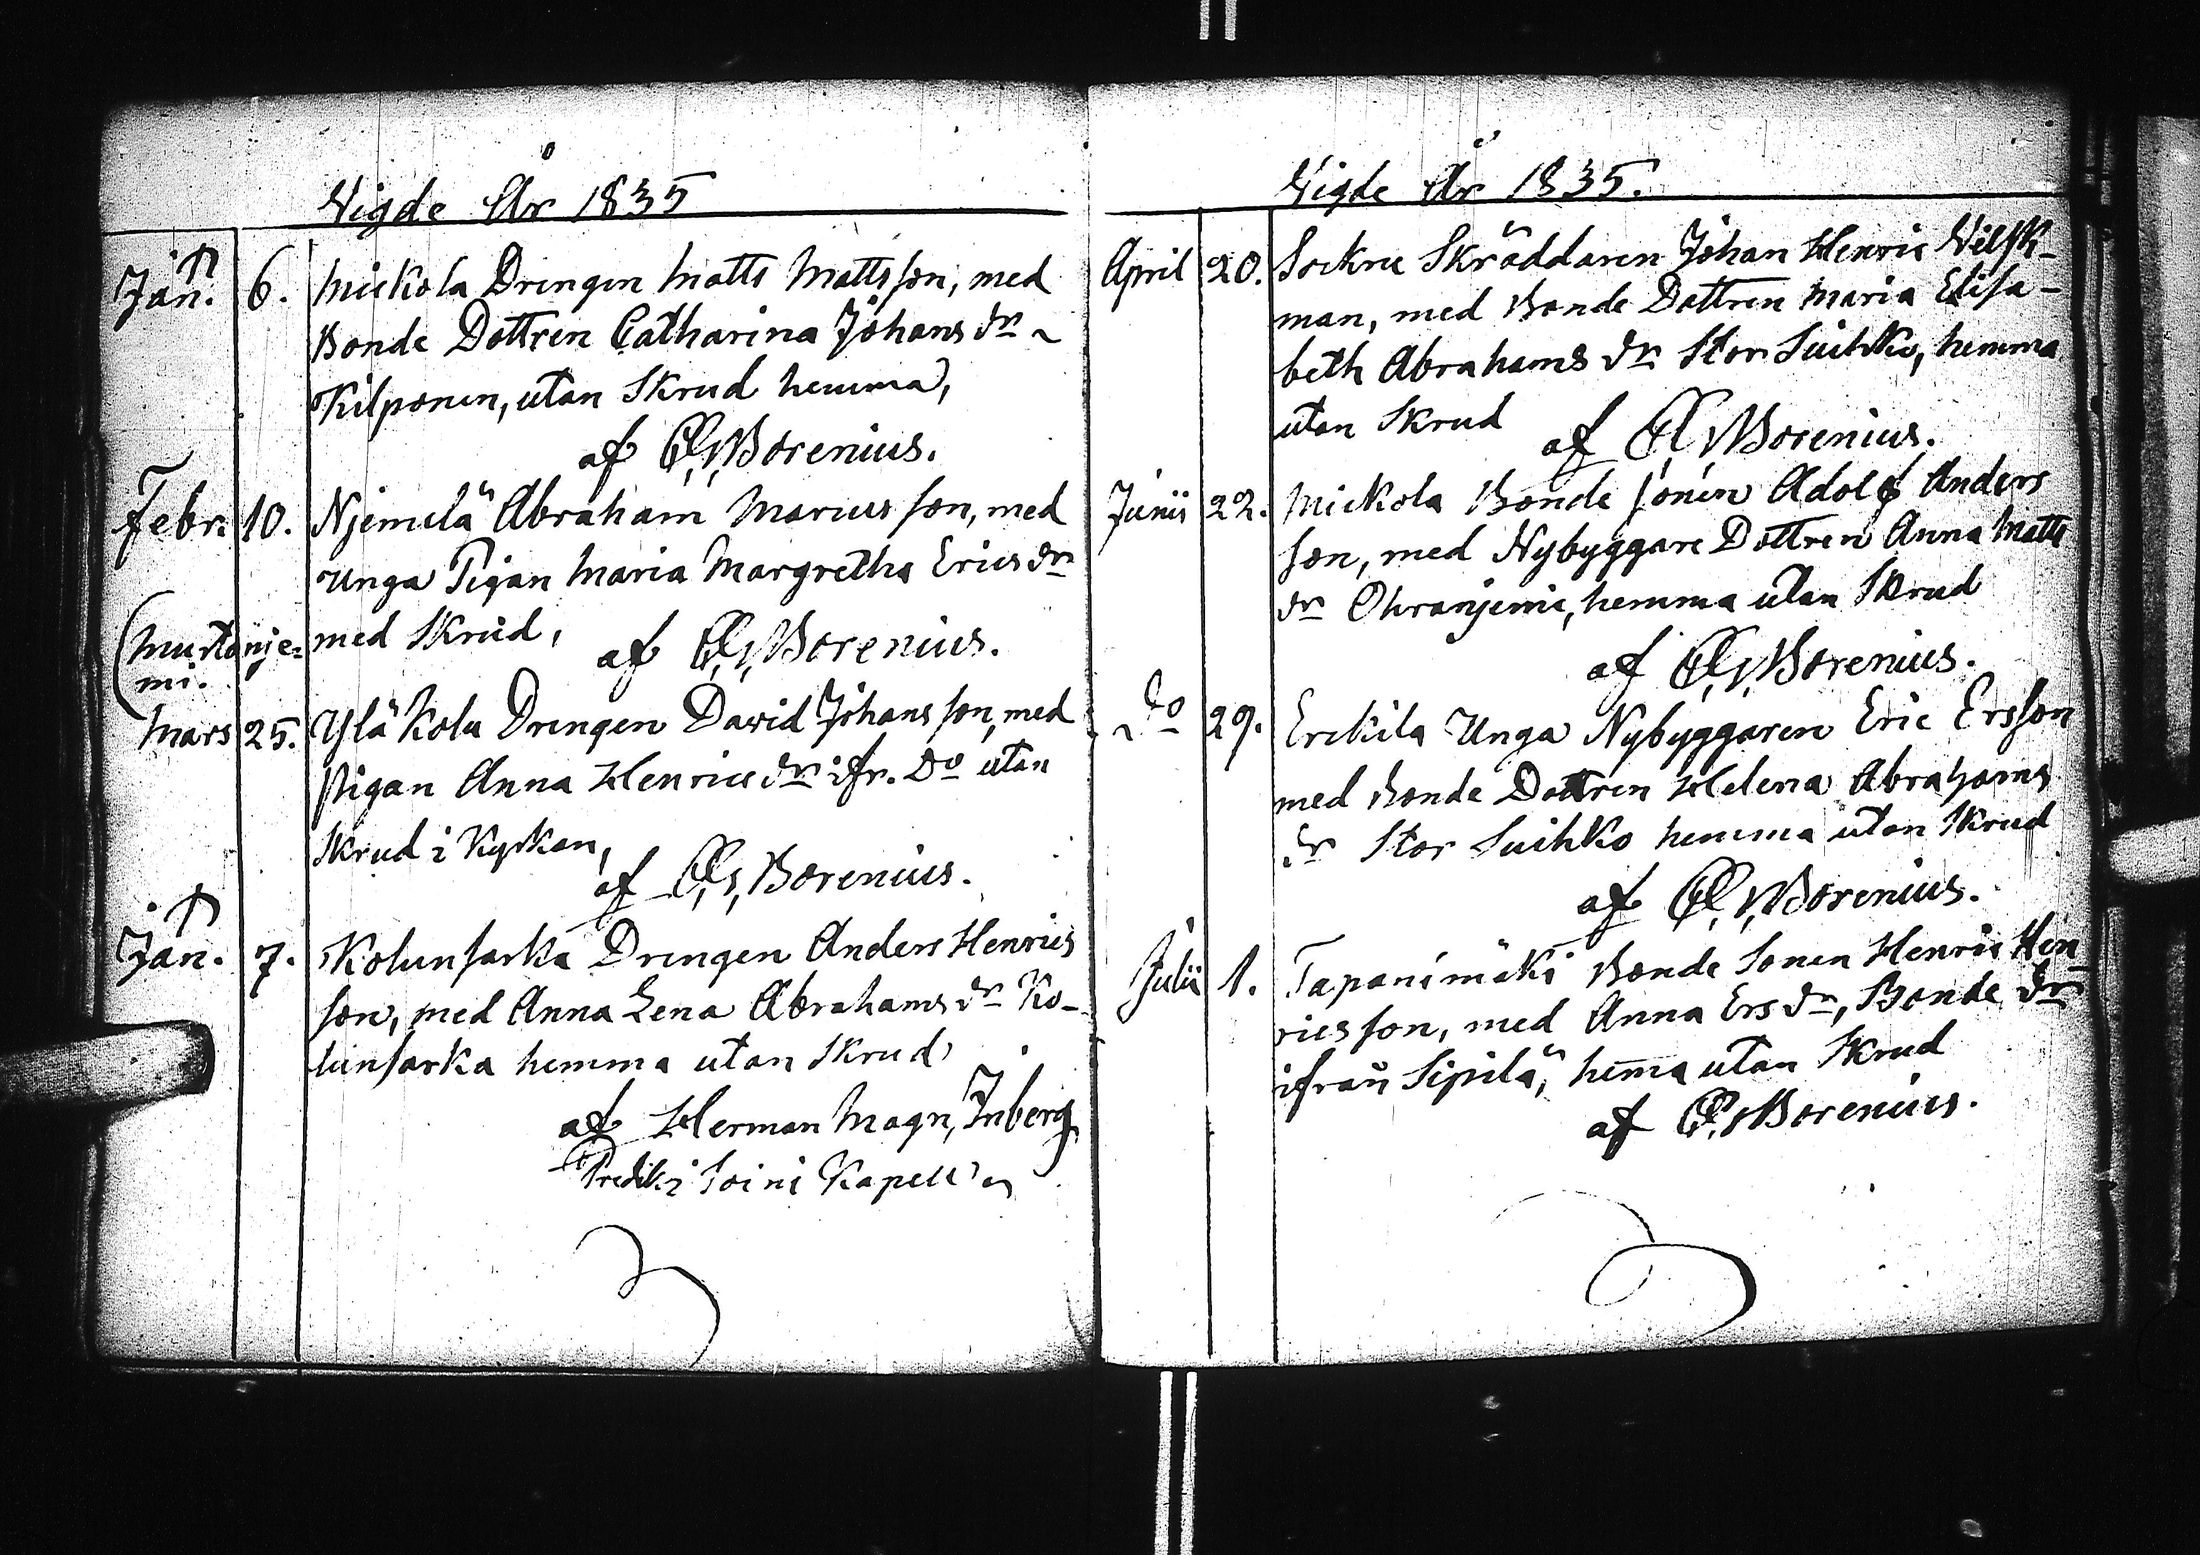 Vigde År 1835
Jan. 6. Mickola Drengen Matts Mattsson, med
Bonde Dottren Catharina Johans dr
Kilponen, utan Skrud hemma,
af Borenius.
Febr. 10. Njemelä Abraham Marcusson, med
Unga Pigan Maria Margretha Erics dr
(Murtonje=
mi.
med Skrud, af Borenius.
Mars 25. Ylä Kolu Drengen David Johansson, med
Pigan Anna Henrics dr ifr. Do utan
Skrud i Kyrkan,
af Borenius.
Jan. 7. Kolunsarka Drengen Anders Henrics
son, med Anna Lena Abrahams dr Ko-
lunsarka hemma utan Skrud
af Herman Magn, Inberg
Predik i Soini Kapell
Vigde År 1835.
April 20. Sockne Skräddaren Johan Henric Vilsk-
man, med Bonde Dottren Maria Elisa-
beth Abrahams dr Stor Suihko, hemma
utan Skrud
af Borenius.
Junii 22. Mickola Bonde Sonen Adolf Anders
son, med Nybyggare Dottren Anna Matts
dr Ohranjemi, hemma utan Skrud
af Borenius.
Do 29. Erckila Unga Nybyggaren Eric Ersson
med Bonde Dottren Helena Abrahams
dr Stor Suihko hemma utan Skrud
af Borenius.
Julii 1. Tapanimäki Bonde Sonen Henric Hen-
ricsson, med Anna Ers dr, Bonde dr
ifrån Sipilä, hema utan Skrud
af Borenius.